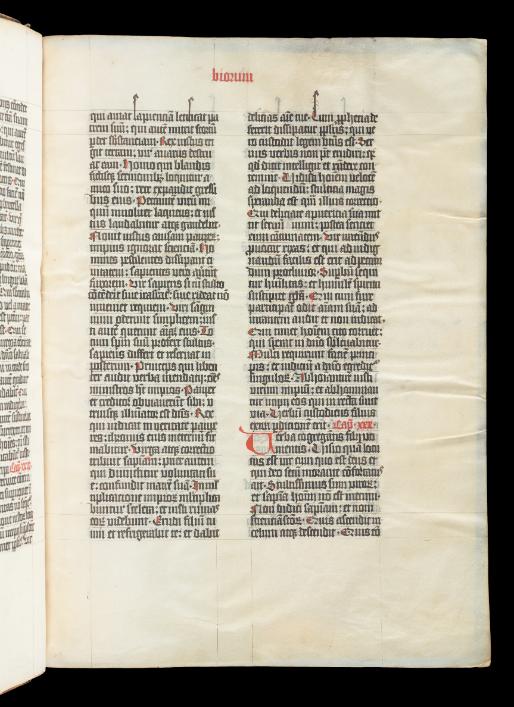 biorum
qui amat sapienciam letificat pa
trem suū; qui autē nutrit scorta
pdet substanciam. Rex iustus eri
git terram; vir auarus destru
et eam. Homo qui blandis
fictisq; sermonib; loquitur a
mico suo; rete expandit gressi
bus eius. Peccantē virū ini
quū inuoluet laqueus; et ius
tus laudabitur atq; gaudebit.
Nouit iustus causam paupeȝ;
impius ignorat scienciā. Ho
mines pestilentes dissipant ci
uitatem; sapientes vero auertūt
furorem. Vir sapiens si cū stulto
cōtēderit siue irascatur siue rideat nō
inueniet requiem. Viri sangui
num oderunt simplicem; ius
ti autē querunt aīam eius. To
tum spūm suū profert stultus;
sapiens differt et reseruat in
posterum. Princeps qui liben
ter audit verba mendacij; oēs
ministros ht impios. Pauper
et creditor obuiauerūt sibi; u
triusq; illūiator est dn̄s. Rex
qui iudicat in veritate paupe
res; thronus eius in eternū fir
mabitur. Virga atq; correctio
tribuit sapiam; puer autem
qui dimittitur volūtati su
e; confundit matrē suā. In mul
tiplicatione impioȝ multiplica
buntur scelera; et iusti ruinas
eoȝ videbunt. Erudi filiū tu
um et refrigerabit te; et dabit
delicias aīe tue. Cum pphetia de
fecerit dissipabitur pplus; qui ve
ro custodit legem btūs est. Ser
uus verbis non pt erudiri; qr
qd̄ dicis intelligit et rn̄dere con
tempnit. Vidisti hoīem velocē
ad loquendū; stulticia magis
speranda est qm̄ illius correctio.
Qui delicate a puericia sua nut
rit seruū suum; postea senciet
eum cōtumacem. Vir iracūdus
puocat rixas; et qui ad indig
nandū facilis est erit ad peccan
dum procliuior. Suꝑbū sequi
tur humilitas; et humilē spiritu
suscipiet gl̄a. Qui cum fure
participat odit aīam suā; ad
iurantem audit et non iudicat.
Qui timet hoīem cito corruet;
qui sperat in dnō subleuabitur.
Multi requirunt faciē princi
pis; et iudiciū a dnō egredit̄
singuloȝ. Abhominant̄ iusti
virum impiū; et abhominan
tur impij eos qui in recta sunt
via. Verbum custodiens filius
extra pdicionē erit. Cap̄ xxx.
Verba cōgregātis filij vo
mentis. Visio quā locu
tus est vir cum quo est deus et
qui deo secū morante cōfortatus
ait. Stultissimus sum viroȝ;
et sapīa hoīm nō est mecum.
Non didici sapiam; et noui
scienciā scōȝ. Quis ascendit in
celum atq; descendit. Quis cō